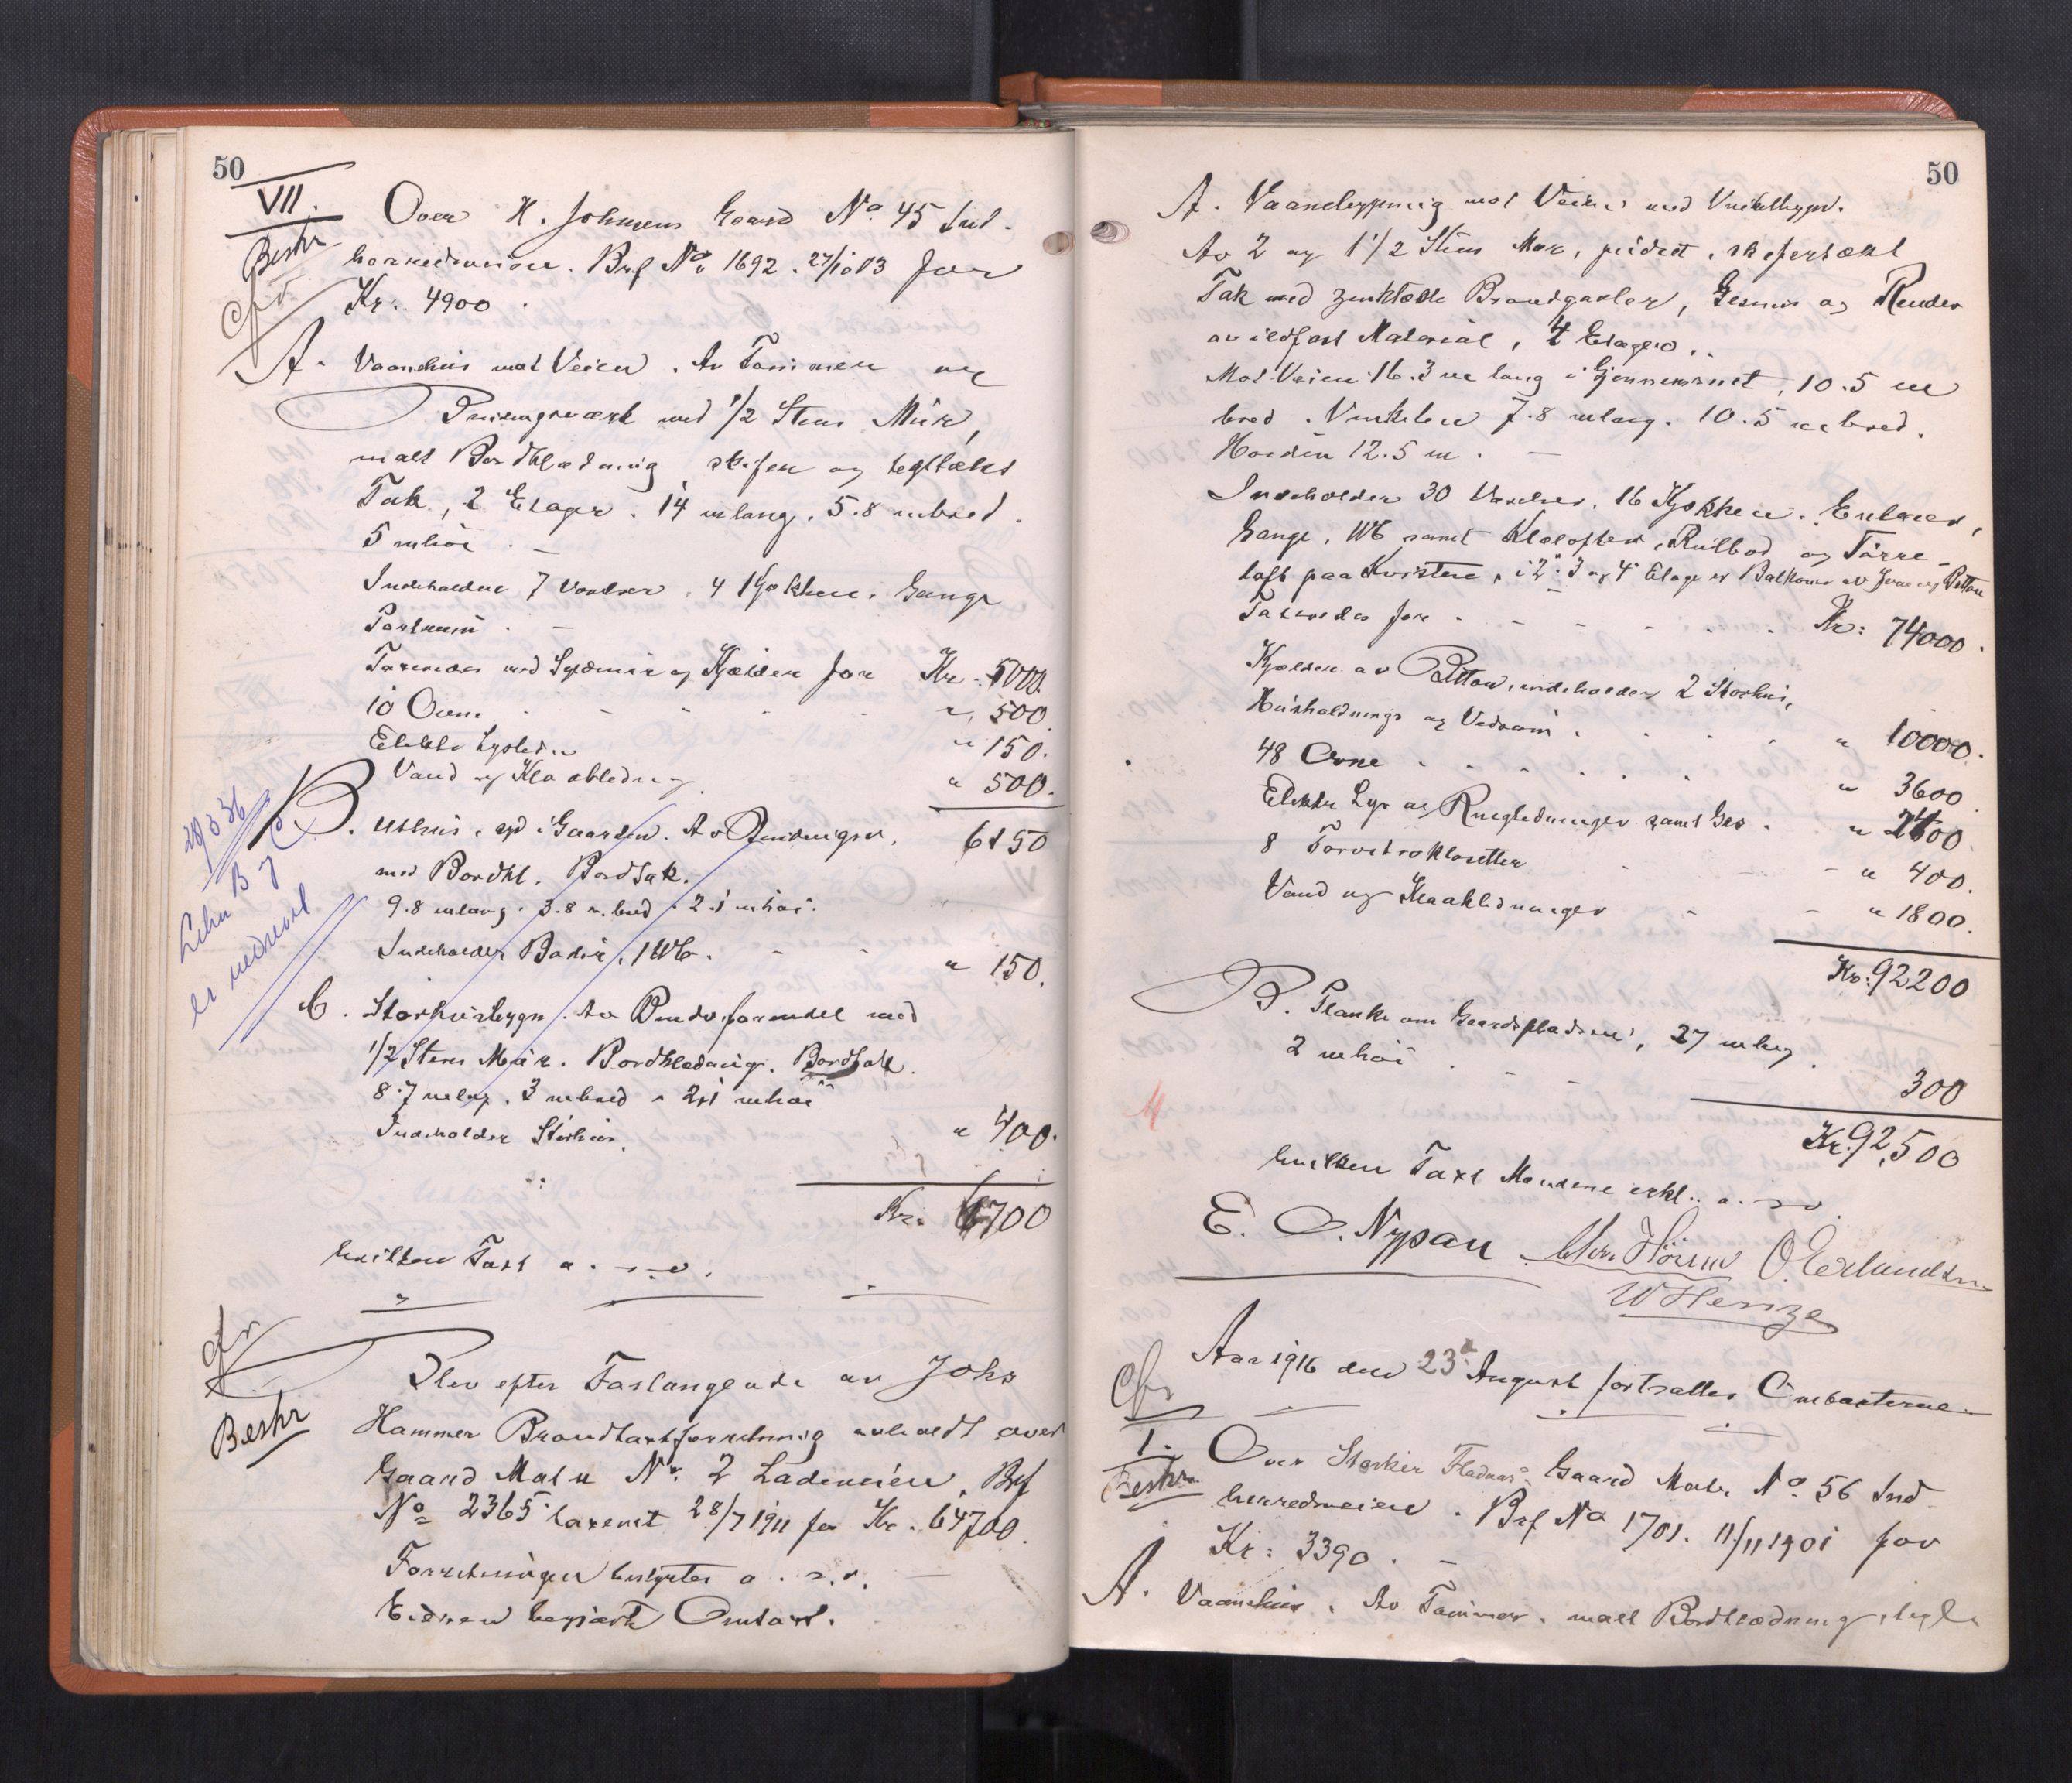 50
VII.
Beskr
Over H. Johnsens Gaard No 45 Ind-
herredsveien. Brf No 1692. 27/10 03 for
Kr. 4900.
A. Vaanehus mot Veien. Av Tømmer og
Bindingsværk med 1/2 Stens Mur,
malt Bordklædning skifer og tegltækt
Tak, 2 Etager. 14 m lang. 5.8 m bred.
5 m høi. –
Indeholder 7 Værelser, 4 Kjøkken, Gange
Portrum. –
Taxeredes med Sydmur og Kjælder for Kr. 5000.
10 Ovne " 500
Elektr Lysledn " 150.
Vand og Kloakledning " 500.
6150
B. Uthus, syd i Gaarden. Av Bindingsv.
med Bordkl. Bordtak.
9.8 m lang. 3.8 m. bred. 2.1 m høi.
Indeholder Boder, 1 WC. " 150.
C. Storhusbygn. Av Bindv. forendel med
1/2 Stens Mur. Bordklædning. Bordtak.
8.7 m lng. 3 m bred. 2,1 m høi
Indeholder Storhus. " 400.
Kr. 6700
hvilken Taxt a. s. v.
20/3 36
Litr B og C
er nedrevet
Beskr
Blev efter Forlangende av Johs
Hammer Brandtaxtforretning avholdt over
Gaard Matr No. 2 Ladeveien, Brf
No 2365 taxeret 28/7 1911 for Kr. 64700.
Forretningen bestyrtes a. s. v. –
Eieren begjærte Omtaxt.
50
A. Vaanebygning mot Veien med Vinkelbygn.
Av 2 og 1 1/2 Stens Mur, pudset, skifertækt
Tak med zinktækte Brandgavler, Gesims og Render
av ildfast Material, 4 Etager.
Mot Veien 16.3 m lang i Gjennemsnit, 10.5 m
bred. Vinkelen 7.8 m lang. 10.5 m bred.
Høiden 12.5 m. –
Indeholder 30 Værelser, 16 Kjøkken, Entreer,
Gange, WC samt Klæsloft, Rulbod og Tørre-
loft paa Kvisten, i 2. 3 og 4 Etage er Balkoner av Jern og Betton
Taxeredes for Kr: 74000.
Kjælder av Betton, indeholder 2 Storhus,
Husholdnings og Vedrum. " 10000.
48 Ovne " 3600
Elektr Lys og Ringledninger samt Gas. " 2400
8 Torvstroklosetter " 400.
Vand og Kloakledninger " 1800.
Kr: 92200
B. Planke om Gaardspladsen, 27 m lang
2 m høi. 300
Kr. 92,500
hvilken Taxt Mændene erkl. a. s. v.
E. O. Nypan Chr. Höium O Erlandsen
W Henze
Aar 1916 den 23d August fortsattes Ombaxterne
I.
Beskr
Over Sterker Fladaas Gaard Matr No 56 Ind-
herredsveien. Brf No 1701. 11/11 1901 for
Kr: 3390. –
A. Vaanehus. Av Tømmer. malt Bordklædning, tegl-